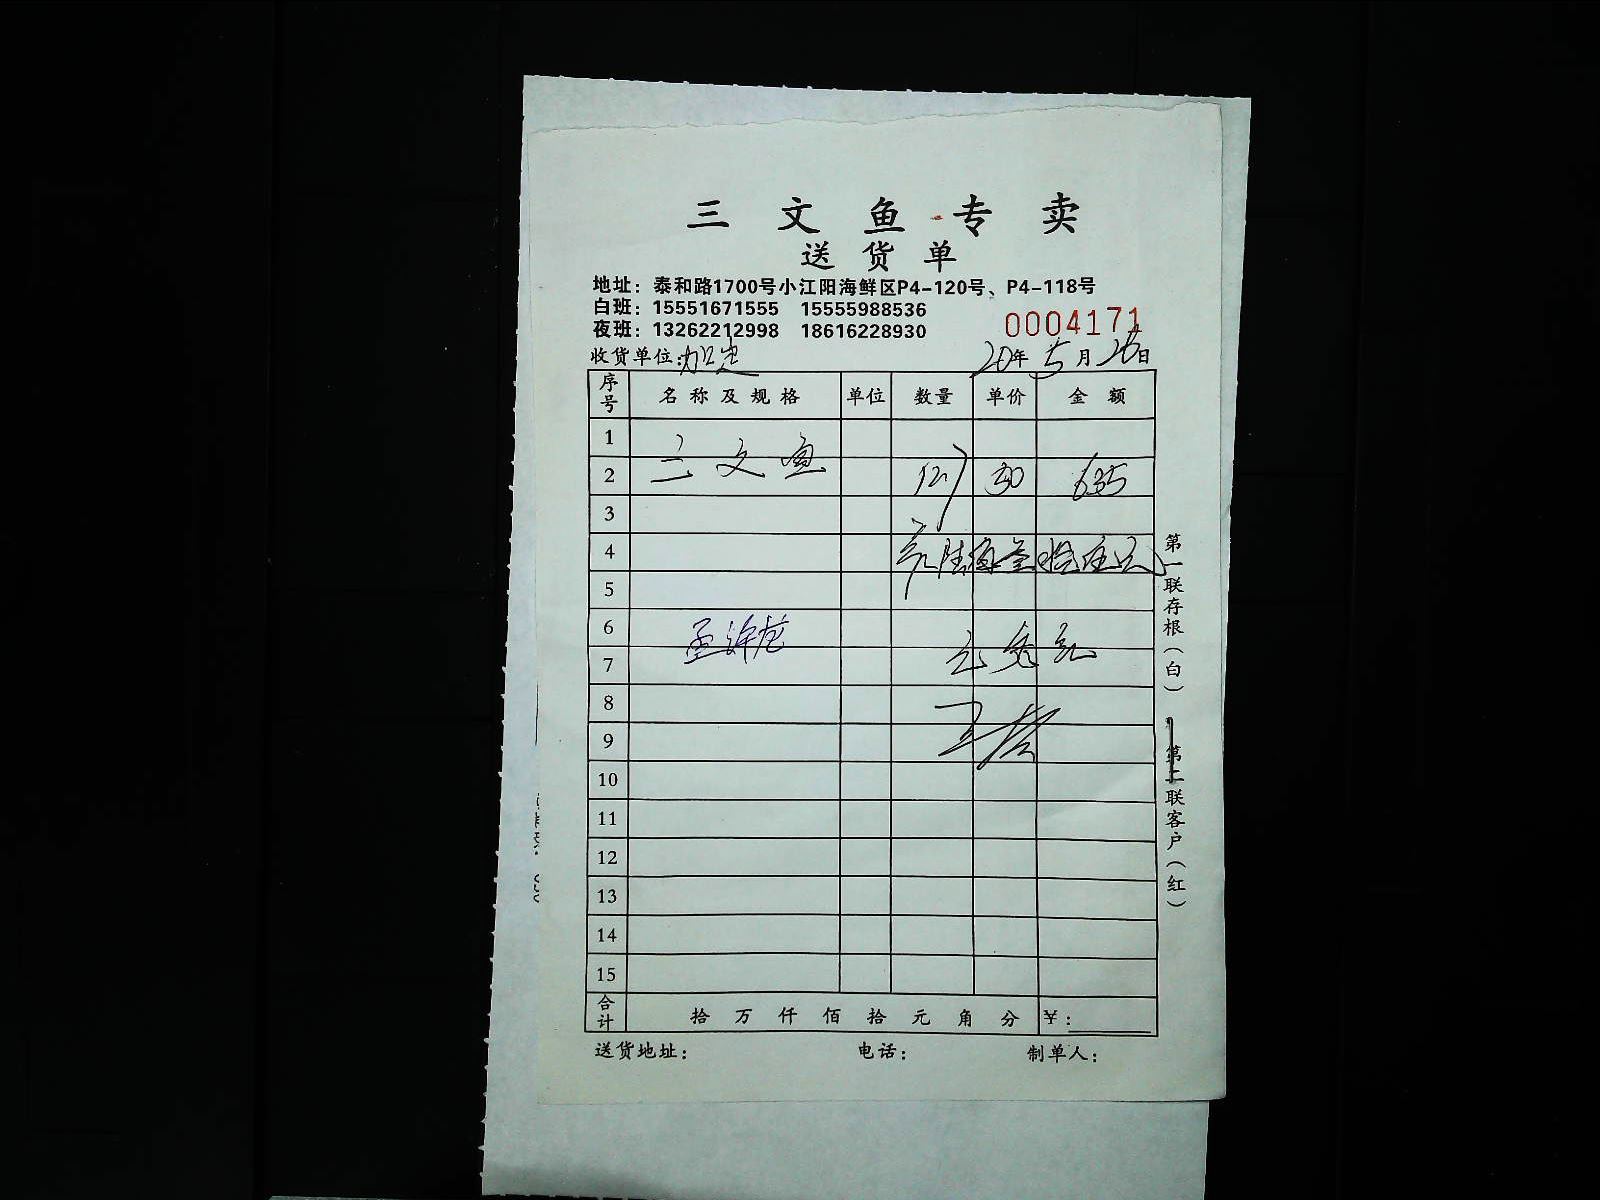 三文鱼专卖
送货单
地址：泰和路1700号小江阳海鲜区P4-120号、P4-118号
白班：15551671555 15555988536
夜班：13262212998 18616228930
0004171
收货单位：加定 20年5月26日
序号 名称及规格 单位 数量 单价 金额
1
2 三文鱼 127 50 635
3
4 陆佰叁拾伍元
5
6
7
8
9
10
11
12
13
14
15
合计 拾万仟佰拾元角分 ￥：
送货地址： 电话： 制单人：
第一联存根（白）
第二联客户（红）